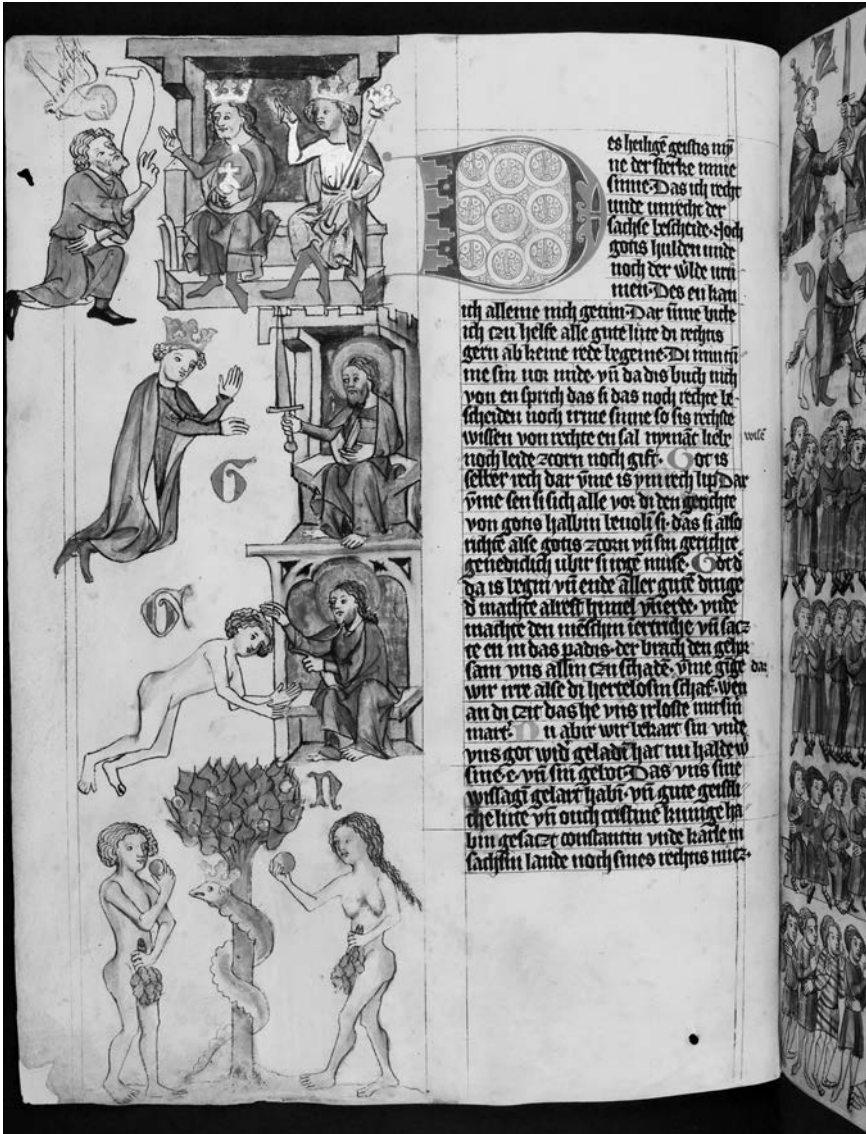 es heiligē geistis mȳ
ne der sterke mine
sinne Das ich recht
unde unrecht der
sachse bescheide Noch
gotis hulden unde
noch der w̄lde urū
men Des en kan
ich alleine nich getun Dar ūme bitte
ich czu helfe alle gute lute di rechtis
gern ab keine rede begeine Di
me sin vnde vn̄ da dis buch nich
von en sprich das si das noch rechte be
scheiden noch irme sinne so sis rechste
wissen von rechte en sal nymāt liebe wisē
noch leide zcorn noch gift Got is
selber rech dar v̄me is ym rech lip Dar
v̄me sen si sich alle vor di den gerichte
von gotis halbin bevoln si das si also
richtē alse gotis zcorn vn̄ sin gerichte
genediclich ubir si irgē muse Got d
da is begin vn̄ ende aller gutē dinge
d machte alrest himel vn̄ erde vnde
machte den mēschin ī ertriche vn̄ sacz
te en in das padis der brach den gehor
sam vns allin czu schadē v̄me gīge dar
wir irre alse di hertelosin schaf wen
an di czit das he vns irloste mit sin
mart Nu abir wir bekart sin vnde
vns got wid geladin hat nu halde w
sine e vn̄ sin gebot Das vns sine
wissagī gelart habī vn̄ gute geistli
che lute vn̄ ouch cristine kunige ha
bin gesaczt constantin vnde karle in
sachsin lande noch sines rechtis
G
G
N